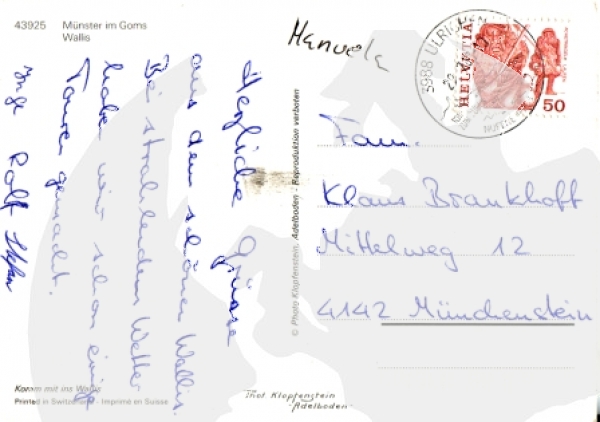 43925 Münster im Goms
Wallis
Manuela
Herzliche Grüsse
aus dem schönen Wallis.
Bei strahlendem Wetter
haben wir schon einige
Touren gemacht.
Inge Rolf Stefan
© Photo Klopfenstein, Adelboden - Reproduktion verboten
3988 ULRICHEN
HELVETIA
50
Fam.
Klaus Brankhoff
Mittelweg 12
4142 Münchenstein
Komm mit ins Wallis
Printed in Switzerland - Imprimé en Suisse
Phot. Klopfenstein
- Adelboden -